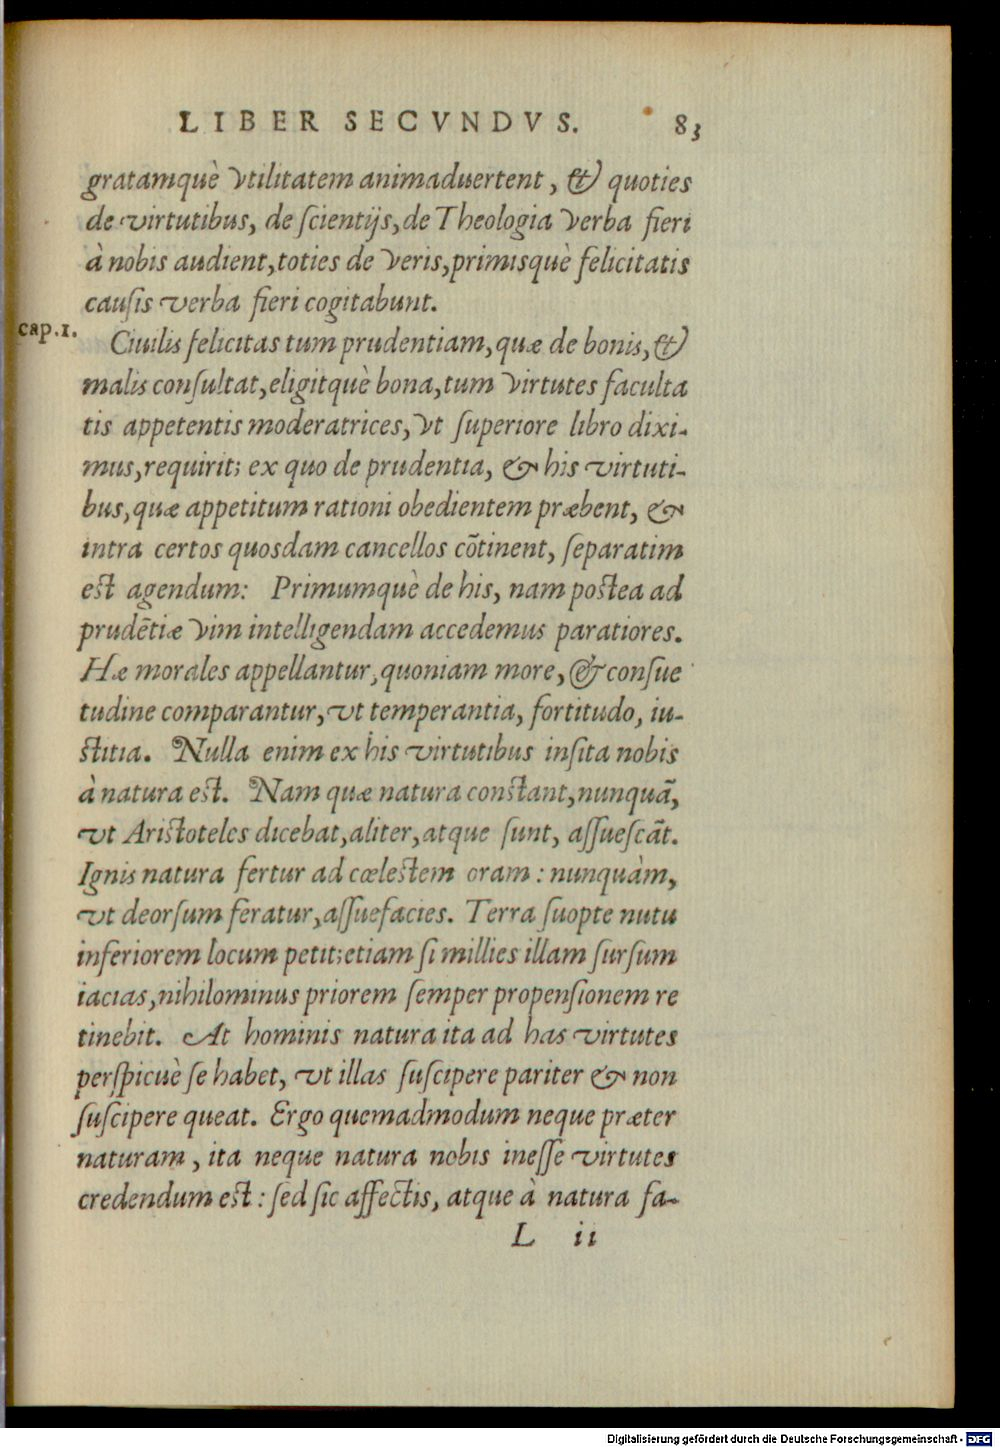 LIBER SECVNDVS. 83
gratamquè vtilitatem animaduertent, & quoties
de virtutibus, de scientijs, de Theologia verba fieri
à nobis audient, toties de veris, primisquè felicitatis
causis verba fieri cogitabunt.
cap.1.
Ciuilis felicitas tum prudentiam, quæ de bonis, &
malis consultat, eligitquè bona, tum virtutes faculta
tis appetentis moderatrices, vt superiore libro dixi-
mus, requirit; ex quo de prudentia, & his virtuti-
bus, quæ appetitum rationi obedientem præbent, &
intra certos quosdam cancellos cõtinent, separatim
est agendum: Primumquè de his, nam postea ad
prudẽtiæ vim intelligendam accedemus paratiores.
Hæ morales appellantur, quoniam more, & consue
tudine comparantur, vt temperantia, fortitudo, iu-
stitia. Nulla enim ex his virtutibus insita nobis
à natura est. Nam quæ natura constant, nunquã,
vt Aristoteles dicebat, aliter, atque sunt, assuescãt.
Ignis natura fertur ad cœlestem oram: nunquàm,
vt deorsum feratur, assuefacies. Terra suopte nutu
inferiorem locum petit; etiam si millies illam sursum
iacias, nihilominus priorem semper propensionem re
tinebit. At hominis natura ita ad has virtutes
perspicuè se habet, vt illas suscipere pariter & non
suscipere queat. Ergo quemadmodum neque præter
naturam, ita neque natura nobis inesse virtutes
credendum est: sed sic affectis, atque à natura fa-
L ii
Digitalisierung gefördert durch die Deutsche Forschungsgemeinschaft - DFG